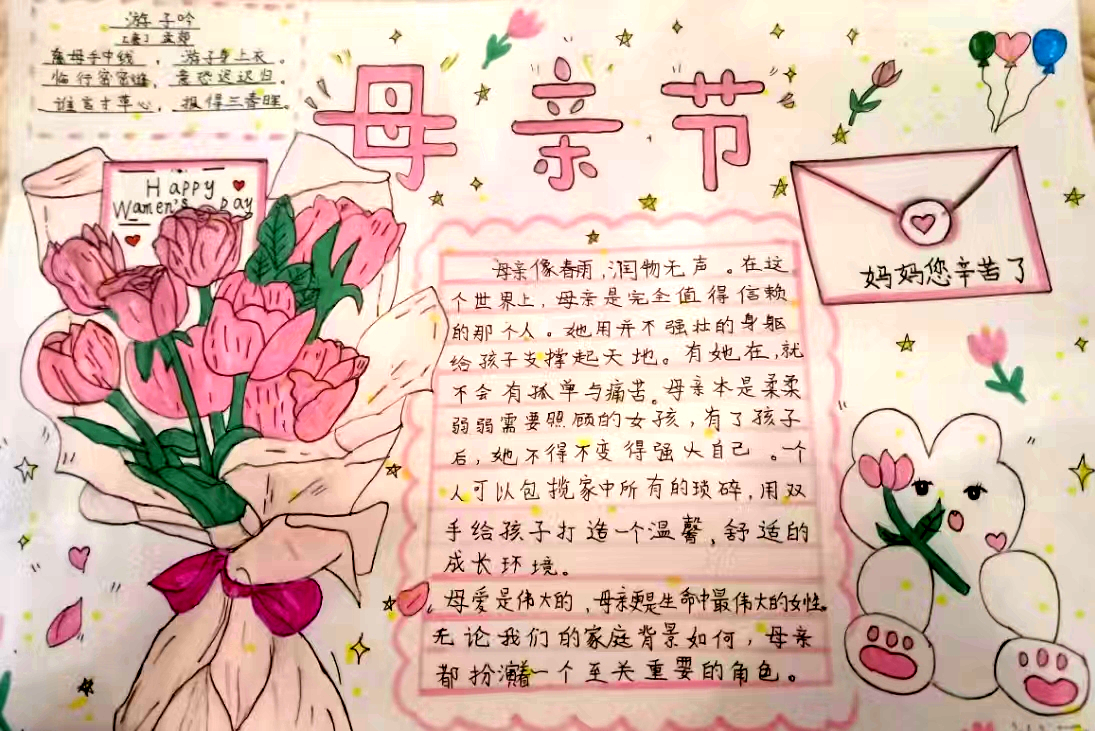 游子吟
【唐】孟郊
慈母手中线，游子身上衣。
临行密密缝，意恐迟迟归。
谁言寸草心，报得三春晖。
母亲节
Happy
Wamen's Day
妈妈您辛苦了
母亲像春雨，润物无声。在这
个世界上，母亲是完全值得信赖
的那个人。她用并不强壮的身躯
给孩子支撑起天地。有她在，就
不会有孤单与痛苦。母亲本是柔柔
弱弱需要照顾的女孩，有了孩子
后，她不得不变得强大自己。一个
人可以包揽家中所有的琐碎，用双
手给孩子打造一个温馨，舒适的
成长环境。
母爱是伟大的，母亲更是生命中最伟大的女性。
无论我们的家庭背景如何，母亲
都扮演着一个至关重要的角色。